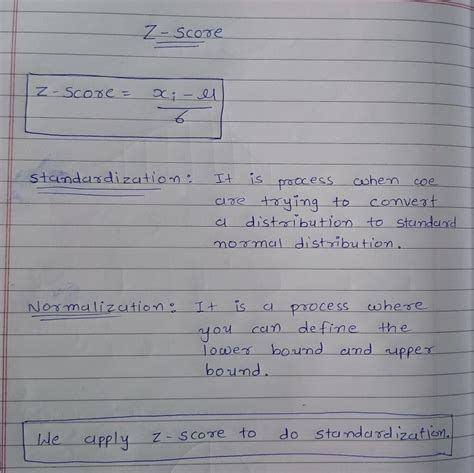 Z-Score
Z-Score = xi - μ
σ
Standardization: It is process when we
are trying to convert
a distribution to standard
normal distribution.
Normalization: It is a process where
you can define the
lower bound and upper
bound.
We apply z-score to do standardization.